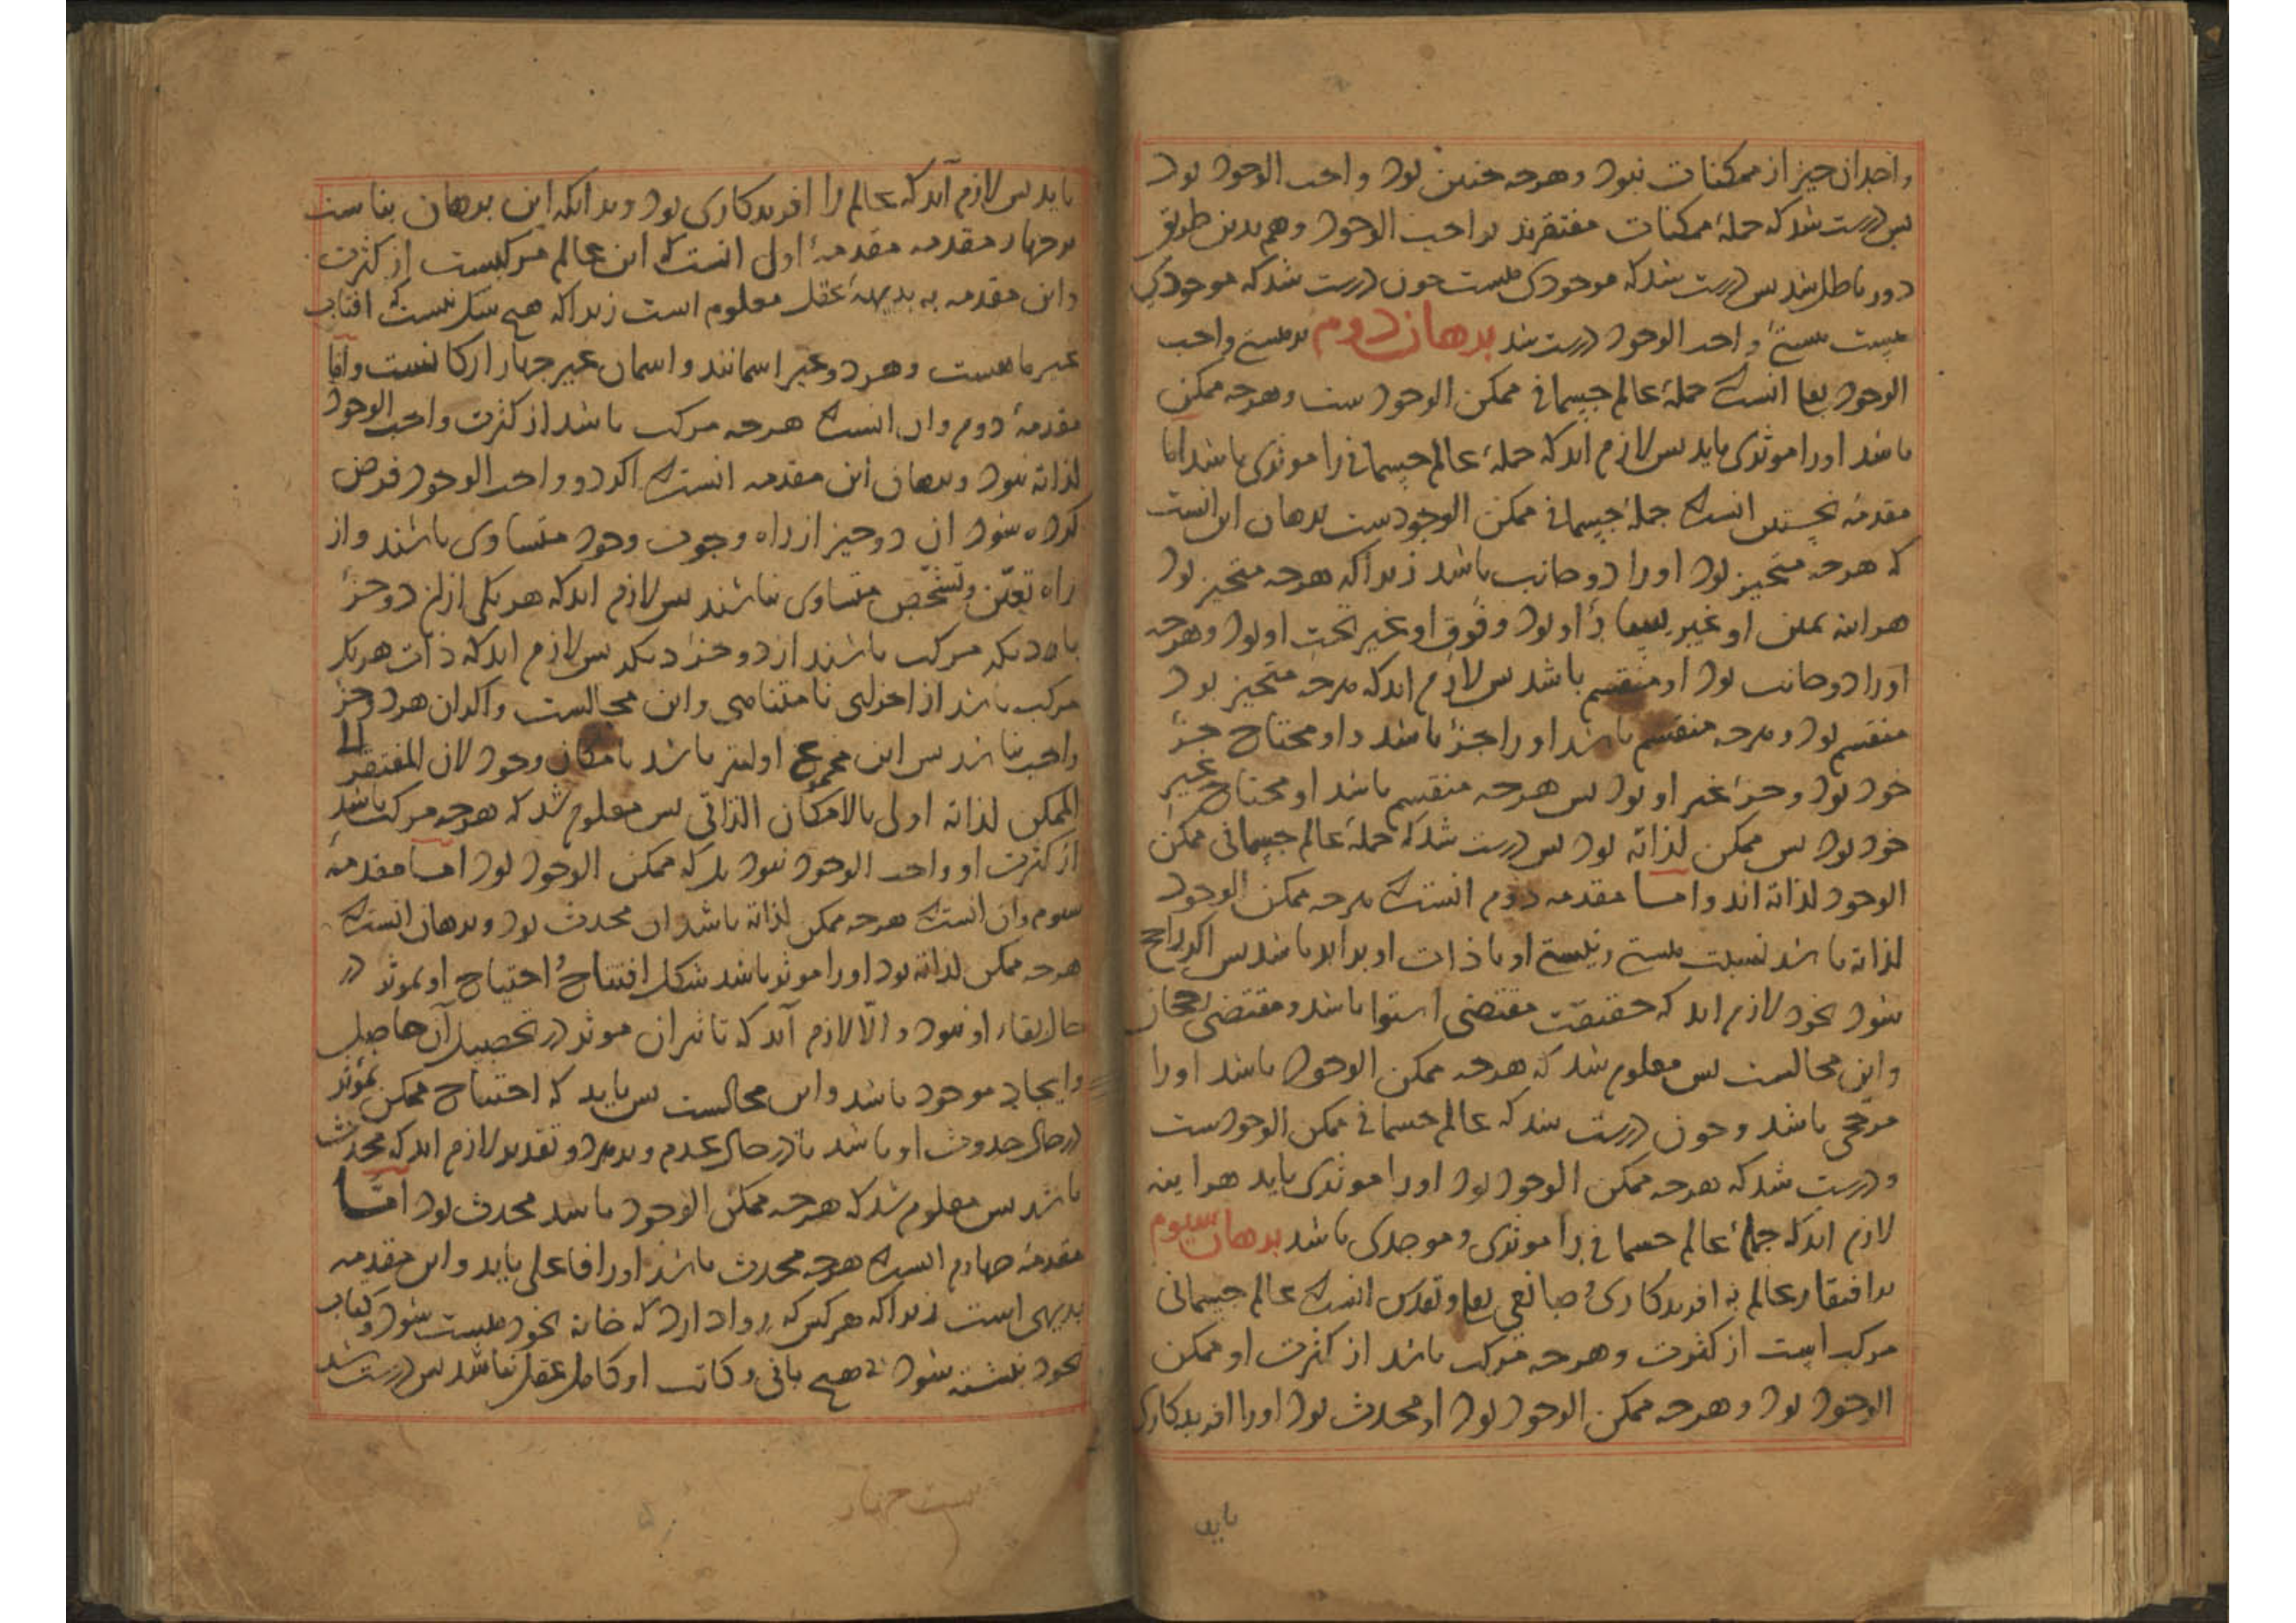 واحد ان چیز از ممکنات نبود و هرچه چنین بود واجب الوجود بود
پس درست شد که جملهٔ ممکنات مفتقرند بواجب الوجود و هم بدین طریق
دور باطل شد پس درست شد که موجودی هست چون درست شد که موجودی
هست هستی واجب الوجود درست شد برهان دوم بر هستی واجب
الوجود تعا انست که جملهٔ عالم جسمانی ممکن الوجودست و هرچه ممکن
باشد او را موثری باید پس لازم اید که جملهٔ عالم جسمانی را موثری باشد اما
مقدمهٔ نخستین انست که جملهٔ جسمانی ممکن الوجودست برهان این انست
که هرچه متحیز بود او را دو جانب باشد زیرا که هرچه متحیز بود
هراینه یمین او غیر یسار او بود و فوق او غیر تحت او بود و هرچه
او را دو جانب بود او منقسم باشد پس لازم اید که هرچه متحیز بود
منقسم بود و هرچه منقسم باشد او را جزؤ باشد و او محتاج جزؤ
خود بود و جزؤ غیر او بود پس هرچه منقسم باشد او محتاج غیر
خود بود پس ممکن لذاته بود پس درست شد که جملهٔ عالم جسمانی ممکن
الوجود لذاته اند و اما مقدمه دوم انست که هرچه ممکن الوجود
لذاته باشد نسبت هستی و نیستی او با ذات او برابر باشد پس اگر راجح
شود بخود لازم اید که حقیقت مقتضی استوا باشد و مقتضی رجحان
و این محالست پس معلوم شد که هرچه ممکن الوجود باشد او را
مرجحی باشد و چون درست شد که عالم جسمانی ممکن الوجودست
و درست شد که هرچه ممکن الوجود بود او را موثری باید هراینه
لازم اید که جملهٔ عالم جسمانی را موثری و موجدی باشد برهان سیوم
بر افتقار عالم به افریدکاری و صانعی تعا و تقدس انست که عالم جسمانی
مرکب است از کثرت و هرچه مرکب باشد از کثرت او ممکن
الوجود بود و هرچه ممکن الوجود بود او محدث بود او را افریدکاری
باید
باید پس لازم آید که عالم را افریدکاری بود و بدانکه این برهان بناست
بر چهار مقدمه مقدمهٔ اول انست که این عالم مرکبست از کثرت
و این مقدمه به بدیههٔ عقل معلوم است زیرا که هیچ شک نیست که افتاب
غیر ماهست و هر دو غیر اسمانند و اسمان غیر چهار ارکانست و اما
مقدمهٔ دوم و ان انست که هرچه مرکب باشد از کثرت واجب الوجود
لذاته نبود و برهان این مقدمه انست که اکر دو واجب الوجود فرض
کرده شود ان دو چیز از راه وجوب وجود متساوی باشند و از
راه تعین و تشخص متساوی نباشند پس لازم اید که هر یکی از ان دو جزؤ
باز دیکر مرکب باشند از دو جزؤ دیکر پس لازم اید که ذات هر یک
مرکب باشد از اجزای نامتناهی و این محالست و اکر ان هر دو جزؤ
واجب نباشند پس این مجموع اولیتر باشد بامکان وجود لان المفتقر الی
الممکن لذاته اولی بالامکان الذاتی پس معلوم شد که هرچه مرکب باشد
از کثرت او واجب الوجود نبود بل که ممکن الوجود بود اما مقدمهٔ
سوم و ان انست که هرچه ممکن لذاته باشد ان محدث بود و برهان انست که
هرچه ممکن لذاته بود او را موثر باشد احتیاج او بموثر در
حال بقاء او نبود و الّا لازم آید که تاثیر ان موثر در تحصیل آن حاصل
و ایجاد موجود باشد و این محالست پس باید که احتیاج ممکن بموثر
در حال حدوث او باشد یا در حال عدم و بر هر دو تقدیر لازم اید که محدث
باشد پس معلوم شد که هرچه ممکن الوجود باشد محدث بود اما
مقدمهٔ چهارم انست که هرچه محدث باشد او را فاعلی باید و این مقدمه
بدیهی است زیرا که هر کس که روا دارد که خانه بخود هست شود و کتاب
بخود نبشته شود بی هیچ بانی و کاتب او کامل عقل نباشد پس درست شد
بیست چهار